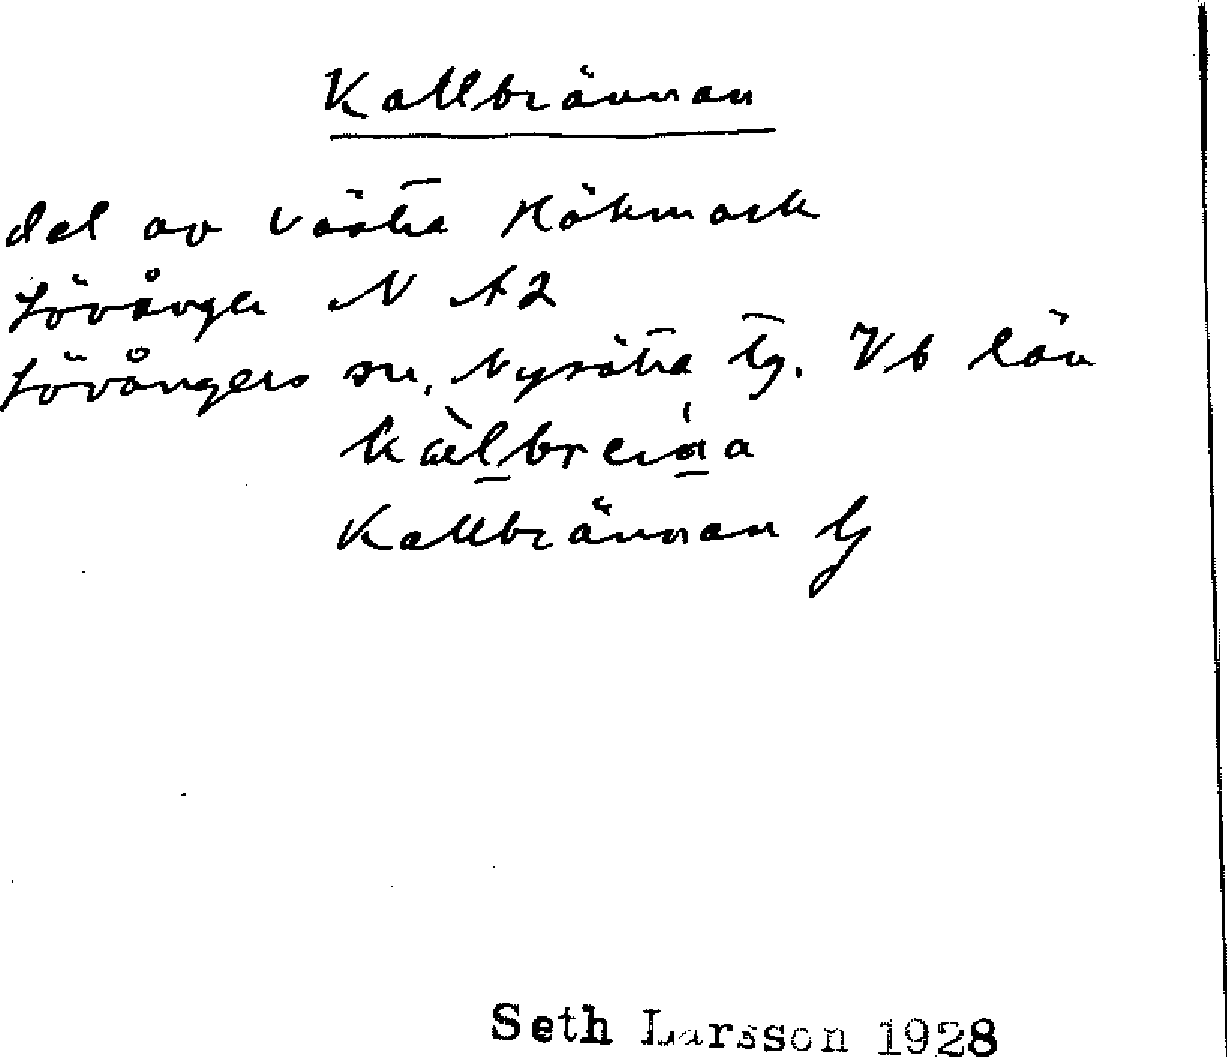 Kallbrännan
del av Västra Hökmark
Lövånger N A2
Lövångers sn, Nysätra tg. Vb län
Kallbrännan
Seth Larsson 1928